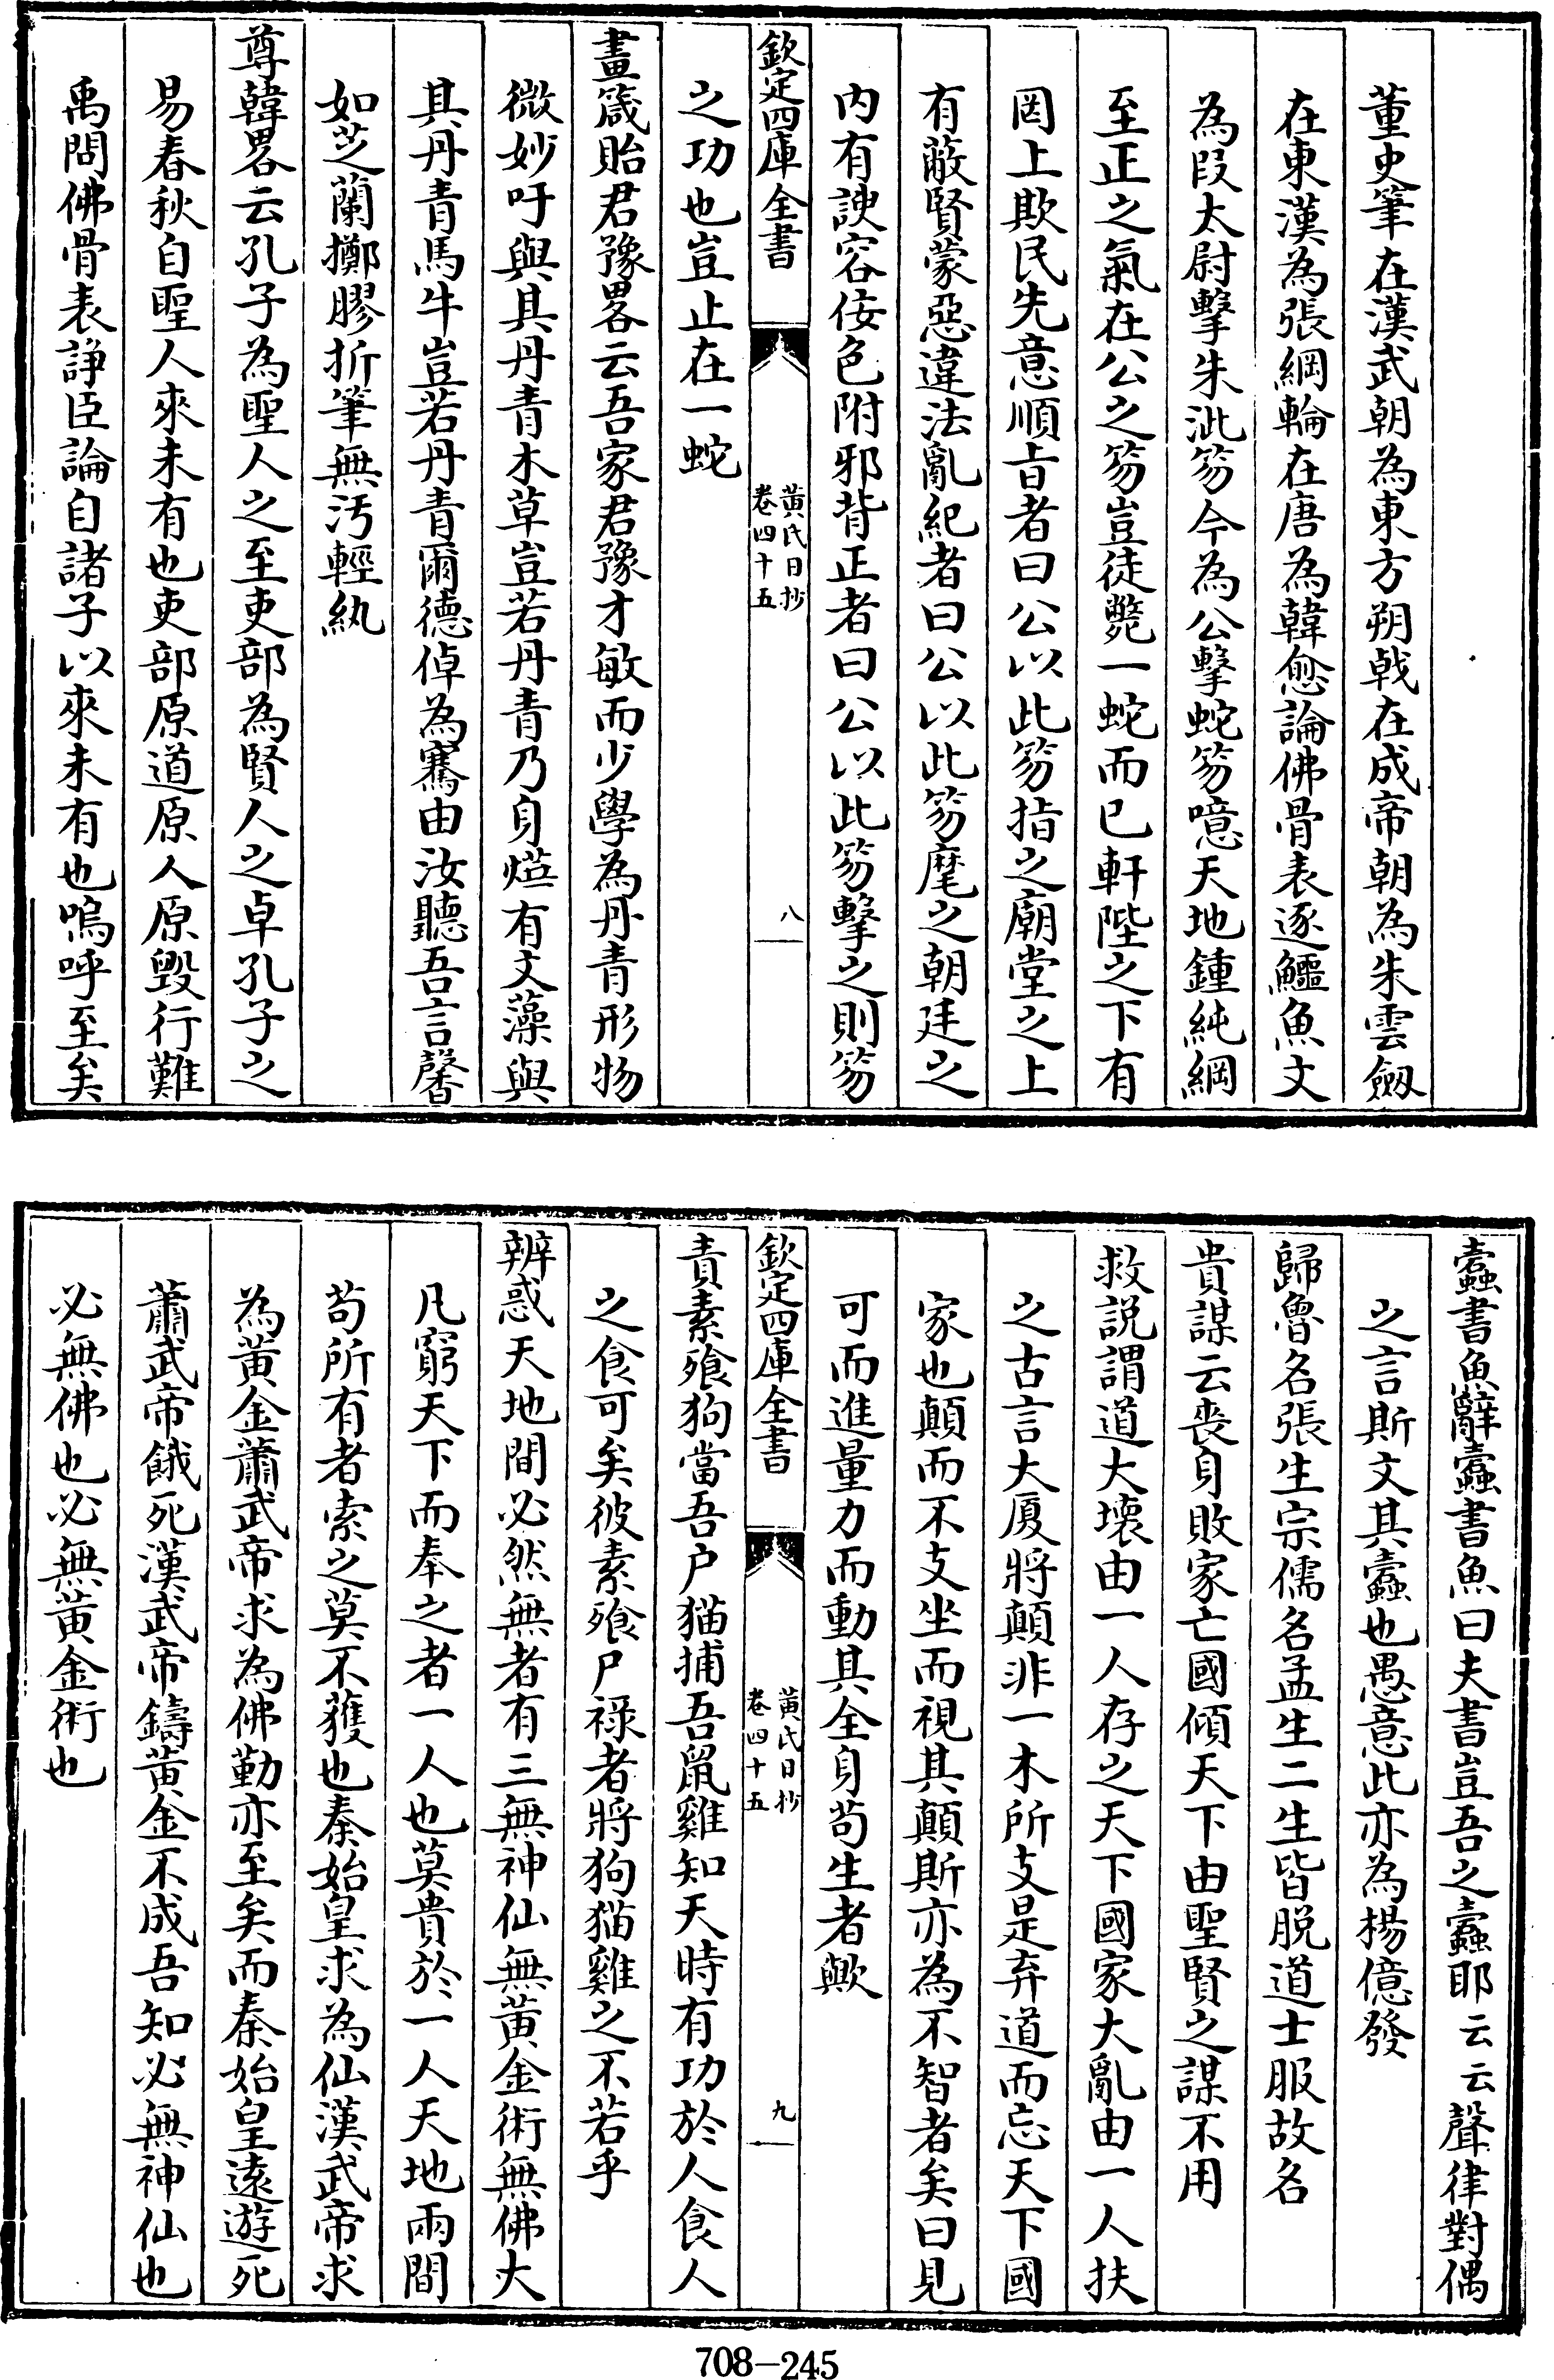 董史筆在漢武朝為東方朔㦸在成帝朝為朱雲劔
在東漢為張綱輪在唐為韓愈論佛骨表逐鱷魚文
為段太尉擊朱泚笏今為公擊蛇笏噫天地鍾純綱
至正之氣在公之笏豈徒斃一蛇而已軒陛之下有
罔上欺民先意順㫖者曰公以此笏指之廟堂之上
有蔽賢蒙惡違法亂紀者曰公以此笏麾之朝廷之
内有諛容佞色附邪背正者曰公以此笏擊之則笏
欽定四庫全書
黄氏日抄
卷四十五
八
之功也豈止在一蛇
畫箴貽君豫畧云吾家君豫才敏而少學為丹青形物
微妙吁與其丹青木草豈若丹青乃身燦有文藻與
其丹青馬牛豈若丹青爾德倬為騫由汝聽吾言馨
如芝蘭擲膠折筆無汚輕紈
尊韓畧云孔子為聖人之至吏部為賢人之卓孔子之
易春秋自聖人來未有也吏部原道原人原毁行難
禹問佛骨表諍臣論自諸子以來未有也嗚呼至矣
蠧書魚辭蠧書魚曰夫書豈吾之蠧耶云云聲律對偶
之言斯文其蠧也愚意此亦為楊億發
歸魯名張生宗儒名孟生二生皆脱道士服故名
貴謀云喪身敗家亡國傾天下由聖賢之謀不用
救説謂道大壞由一人存之天下國家大亂由一人扶
之古言大厦將顛非一木所支是弃道而忘天下國
家也顛而不支坐而視其顛斯亦為不智者矣曰見
可而進量力而動其全身苟生者歟
欽定四庫全書
黄氏日抄
卷四十五
九
責素飱狗當吾户猫捕吾鼠雞知天時有功於人食人
之食可矣彼素飱尸禄者將狗猫雞之不若乎
辨惑天地間必然無者有三無神仙無黄金術無佛大
凡窮天下而奉之者一人也莫貴於一人天地兩間
苟所有者索之莫不獲也秦始皇求為仙漢武帝求
為黄金蕭武帝求為佛勤亦至矣而秦始皇遠遊死
蕭武帝餓死漢武帝鑄黄金不成吾知必無神仙也
必無佛也必無黄金術也
708-245